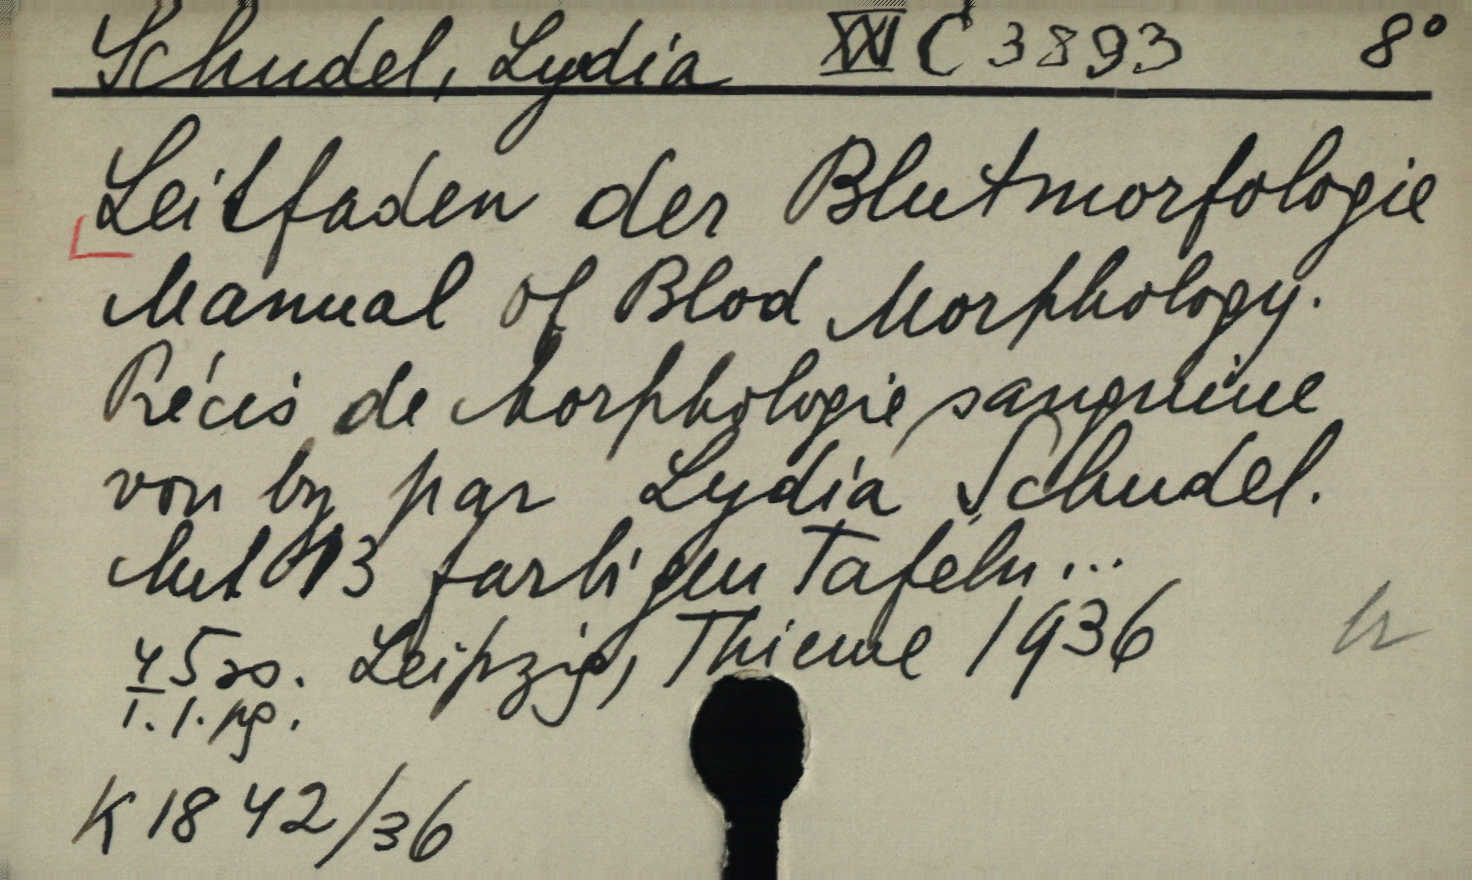 Schudel, Lydia XXI C 3893 8°
Leitfaden der Blutmorfologie
Manual of Blod Morphology.
Précis de Morphologie sanguine
von by par Lydia Schudel.
Mit 13 farbigen Tafeln...
45 so. Leipzig, Thieme 1936
1. 1. pg.
K 1842/36